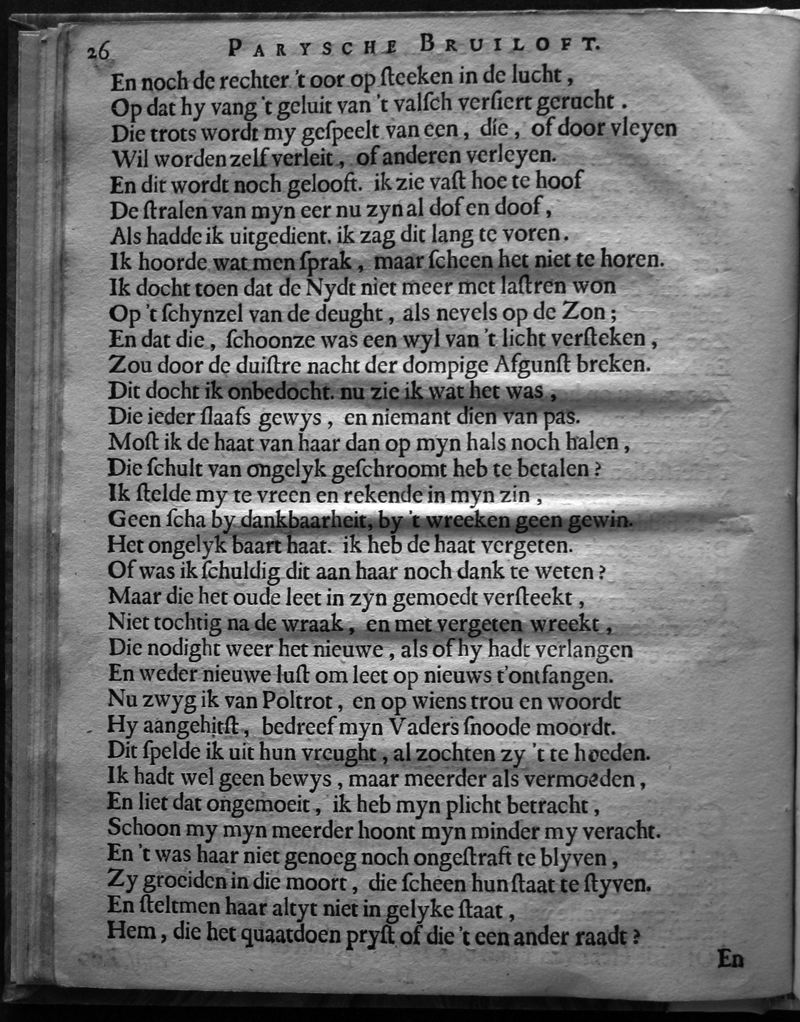 26 PARYSCHE BRUILOFT.
En noch de rechter 't oor op ſteeken in de lucht,
Op dat hy vang 't geluit van 't valſch verſiert gerucht.
Die trots wordt my geſpeelt van een, die, of door vleyen
Wil worden zelf verleit, of anderen verleyen.
En dit wordt noch gelooft. ik zie vaſt hoe te hoof
De ſtralen van myn eer nu zyn al dof en doof,
Als hadde ik uitgedient. ik zag dit lang te voren.
Ik hoorde wat men ſprak, maar ſcheen het niet te horen.
Ik docht toen dat de Nydt niet meer met laſtren won
Op 't ſchynzel van de deught, als nevels op de Zon;
En dat die, ſchoonze was een wyl van 't licht verſteken,
Zou door de duiſtre nacht der dompige Afgunſt breken.
Dit docht ik onbedocht. nu zie ik wat het was,
Die ieder ſlaafs gewys, en niemant dien van pas.
Moſt ik de haat van haar dan op myn hals noch halen,
Die ſchult van ongelyk geſchroomt heb te betalen?
Ik ſtelde my te vreen en rekende in myn zin,
Geen ſcha by dankbaarheit, by 't wreeken geen gewin.
Het ongelyk baart haat. ik heb de haat vergeten.
Of was ik ſchuldig dit aan haar noch dank te weten?
Maar die het oude leet in zyn gemoedt verſteekt,
Niet tochtig na de wraak, en met vergeten wreekt,
Die nodight weer het nieuwe, als of hy hadt verlangen
En weder nieuwe luſt om leet op nieuws t'ontfangen.
Nu zwyg ik van Poltrot, en op wiens trou en woordt
Hy aangehitſt, bedreef myn Vaders ſnoode moordt.
Dit ſpelde ik uit hun vreught, al zochten zy 't te hoeden.
Ik hadt wel geen bewys, maar meerder als vermoeden,
En liet dat ongemoeit, ik heb myn plicht betracht,
Schoon my myn meerder hoont myn minder my veracht.
En 't was haar niet genoeg noch ongeſtraft te blyven,
Zy groeiden in die moort, die ſcheen hun ſtaat te ſtyven.
En ſteltmen haar altyt niet in gelyke ſtaat,
Hem, die het quaatdoen pryſt of die 't een ander raadt?
En